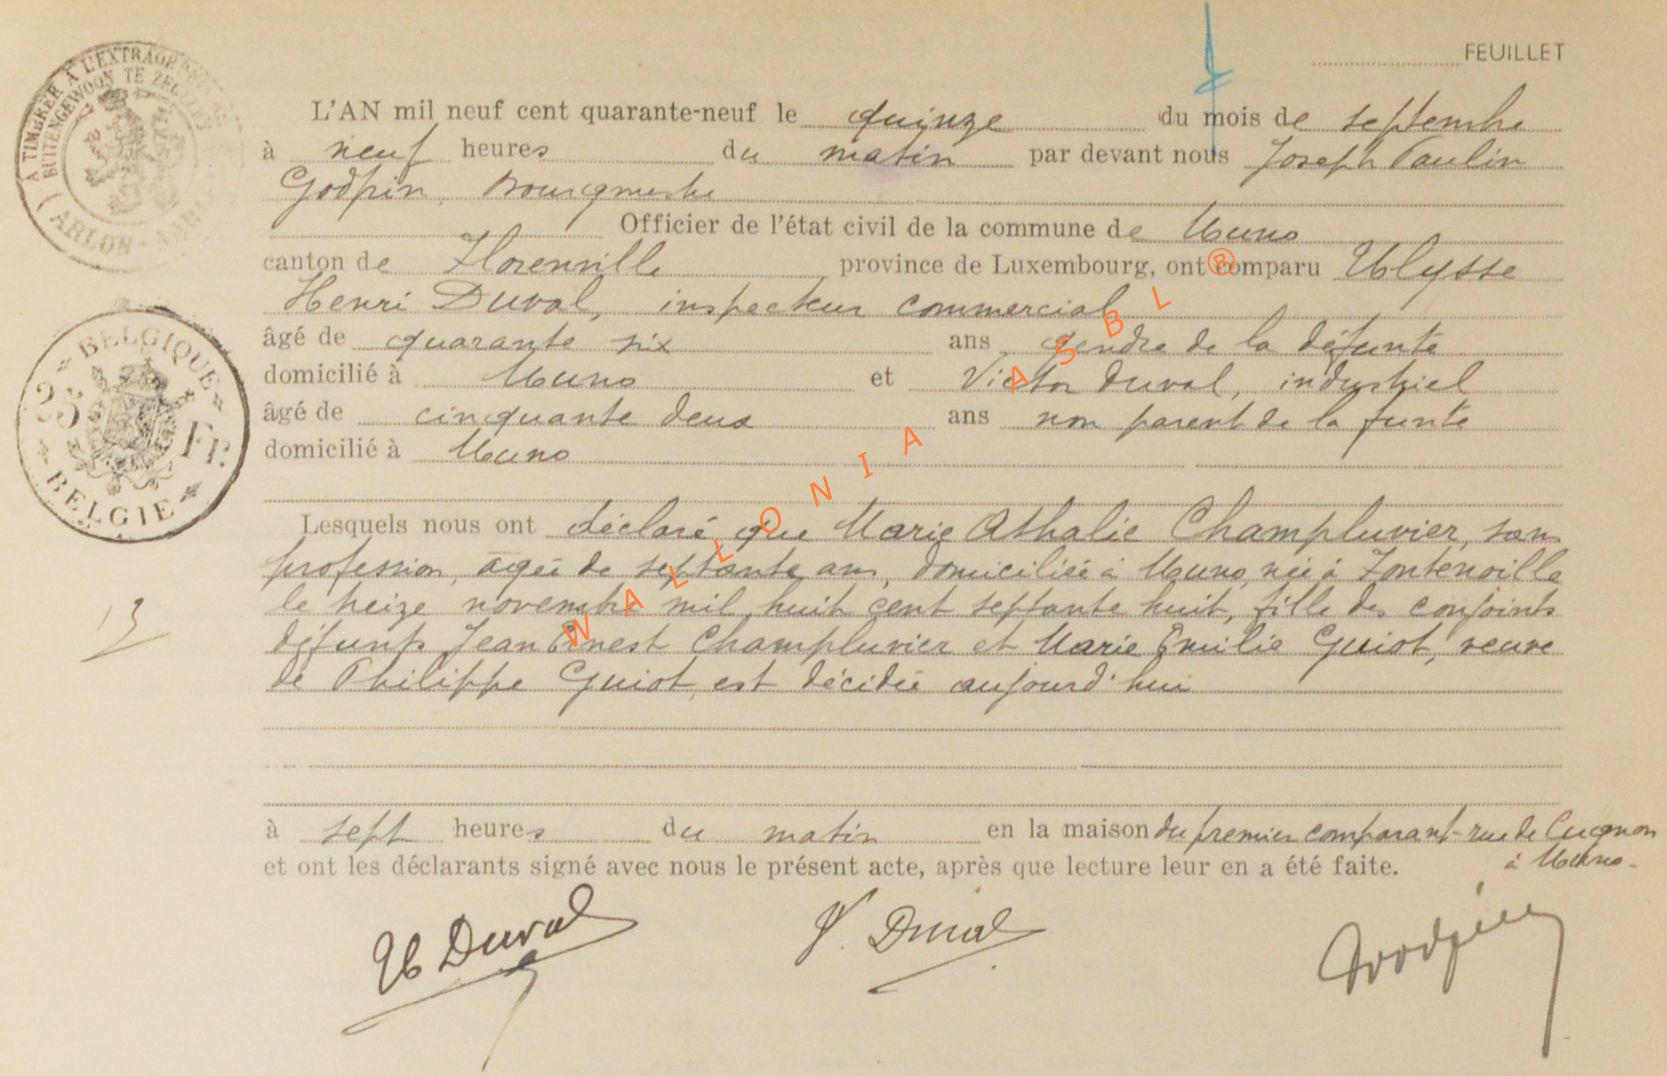 FEUILLET
L'AN mil neuf cent quarante-neuf le quinze du mois de septembre
à neuf heures du matin par devant nous Joseph Paulin
Godfrin, Bourgmestre
Officier de l'état civil de la commune de Muno
canton de Florenville province de Luxembourg, ont comparu Ulysse
Henri Duval, inspecteur commercial
âgé de quarante six ans gendre de la défunte
domicilié à Muno et Victor Duval, industriel
âgé de cinquante deux ans non parent de la funte
domicilié à Muno
Lesquels nous ont déclaré que Marie Athalie Champluvier, sans
profession, âgée de septante ans, domiciliée à Muno, née à Fontenoille
le treize novembre mil huit cent septante huit, fille des conjoints
défunts Jean Ernest Champluvier et Marie Emilie Guiot, veuve
de Philippe Guiot, est décédée aujourd'hui
à sept heures du matin en la maison du premier comparant - rue de Cugnon
à Muno.
et ont les déclarants signé avec nous le présent acte, après que lecture leur en a été faite.
UH Duval V. Duval Godfrin
13
A TIMBRER À L'EXTRAORDINAIRE
BUITENGEWOON TE ZEGELEN
(ARLON - AARLEN)
BELGIQUE
3 Fr.
BELGIE
WALLONIA ASBL ®